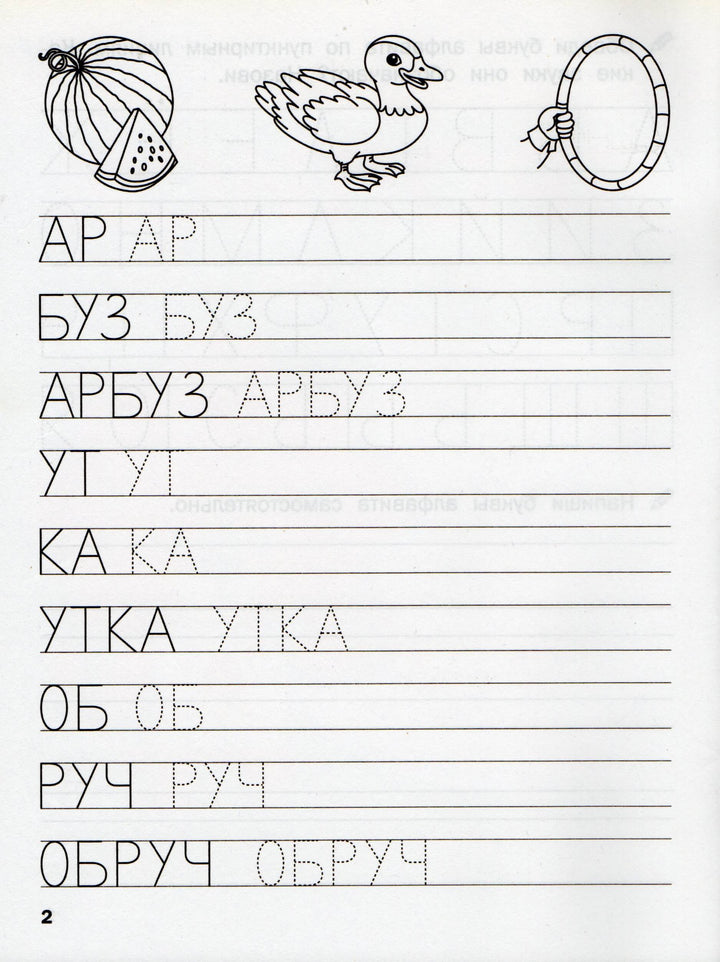 АР АР
БУЗ БУЗ
АРБУЗ АРБУЗ
УТ УТ
КА КА
УТКА УТКА
ОБ ОБ
РУЧ РУЧ
ОБРУЧ ОБРУЧ
2